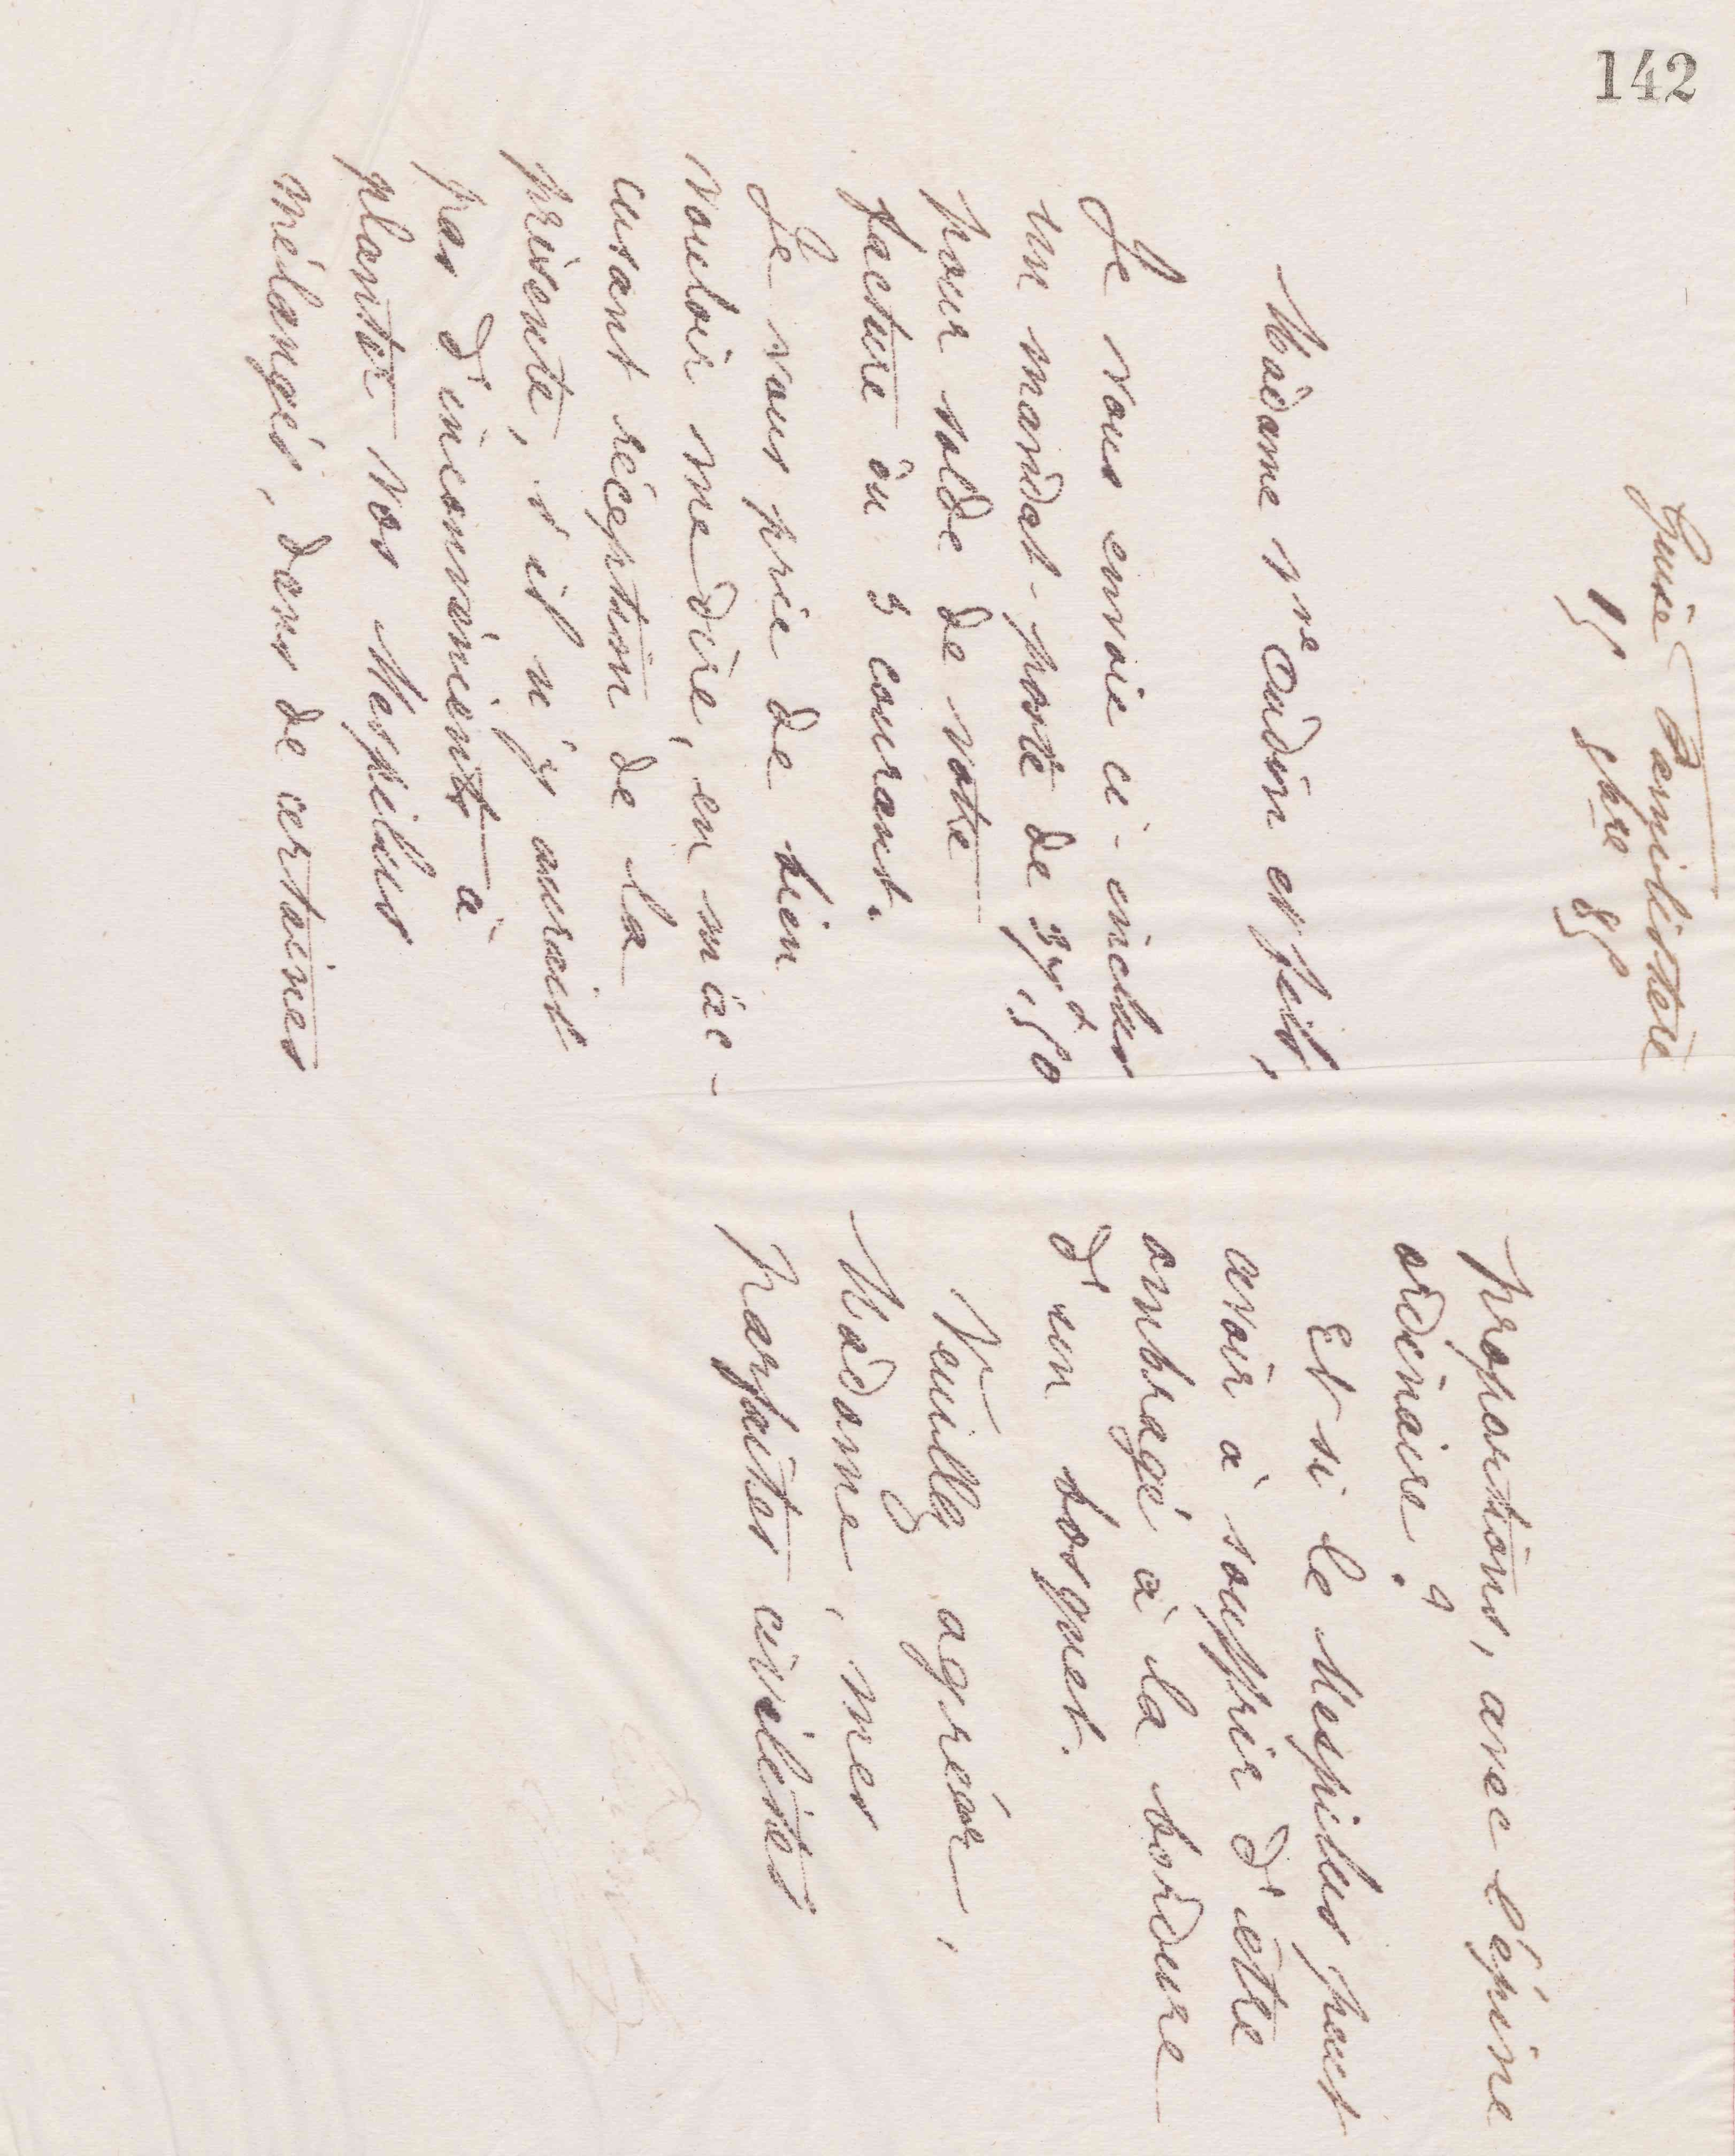 142
Guise Familistère
15 9bre 85
Madame Vve Oudin et fils,
Je vous envoie ci-inclus
un mandat-poste de 37f,50
pour solde de votre
facture du 3 courant.
Je vous prie de bien
vouloir me dire, en m'ac-
cusant réception de la
présente, s'il n'y aurait
pas d'inconvénient à
planter vos Mespilus
mélangés, dans de certaines
proportions, avec l'épine
ordinaire ?
Et si le Mespilus peut
avoir à souffrir d'être
ombragé à la bordure
d'un bosquet.
Veuillez agréer,
Madame, mes
parfaites civilités